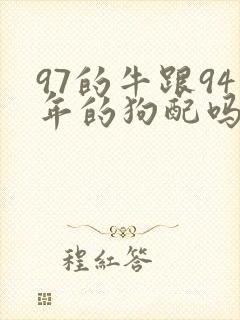 97的牛跟94
年的狗配吗
程红答